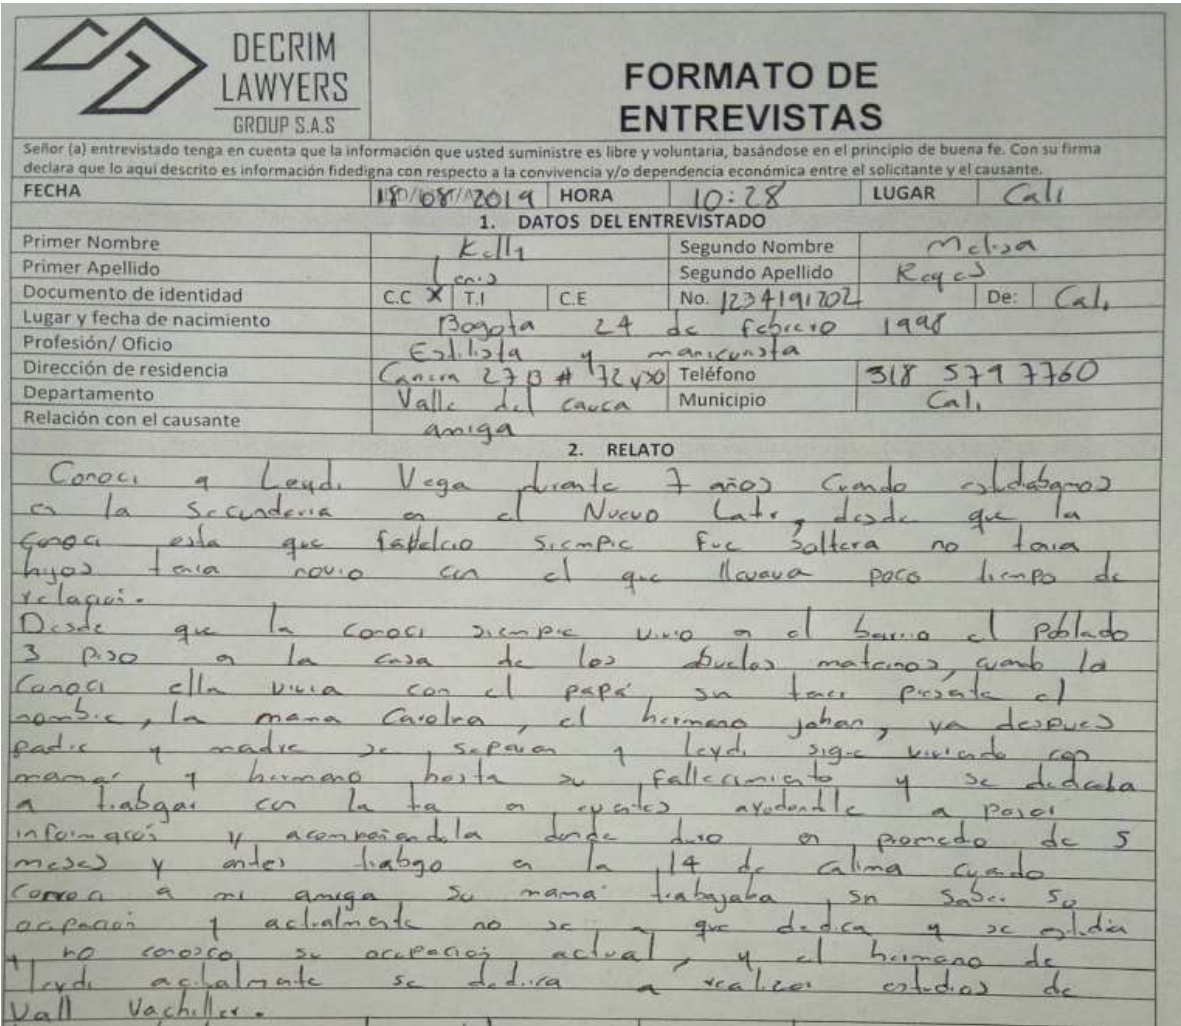 DECRIM
LAWYERS
GROUP S.A.S
FORMATO DE
ENTREVISTAS
Señor (a) entrevistado tenga en cuenta que la información que usted suministre es libre y voluntaria, basándose en el principio de buena fe. Con su firma
declara que lo aquí descrito es información fidedigna con respecto a la convivencia y/o dependencia económica entre el solicitante y el causante.
FECHA 2019 HORA 10:28 LUGAR Cali
1. DATOS DEL ENTREVISTADO
Primer Nombre Kelly Segundo Nombre Melisa
Primer Apellido Segundo Apellido Reyes
Documento de identidad C.C X T.I C.E No. 1234191202 De: Cali
Lugar y fecha de nacimiento Bogota 24 de febrero 1998
Profesión/ Oficio Estilista y manicurista
Dirección de residencia Carrera 27B # 72 Teléfono 318 579 7760
Departamento Valle del cauca Municipio Cali
Relación con el causante amiga
2. RELATO
Conoci a Leydi Vega durante 7 años Cuando estudabamos
en la Secundaria en el Nuevo Latir, desde que la
Conoci esta que siempre fue Soltera no tenia
hijos tenia novio con el que llevava poco tiempo de
relacion.
Desde que la conoci siempre vivio en el barrio el Poblado
3 piso en la casa de los abuelos maternos, cuando la
Conoci ella vivia con el papá, sn tener presente el
nombre, la mama Carolina, el hermano johan, ya despues
padre y madre se separan y leydi sigue viviendo con
mama y hermano hasta su fallecimiento y se dedicaba
a trabajar con la tia en eventos a pasar
información y donde duro en promedio de 5
meses y antes trabajo en la 14 de calima cuando
conoci a mi amiga su mama trabajaba sn saber su
ocupación y actualmente no se a que dedica y se
y no conosco su ocupación actual, y el hermano de
leydi actualmente se dedica a realizar estudios de
Vall Vachiller.